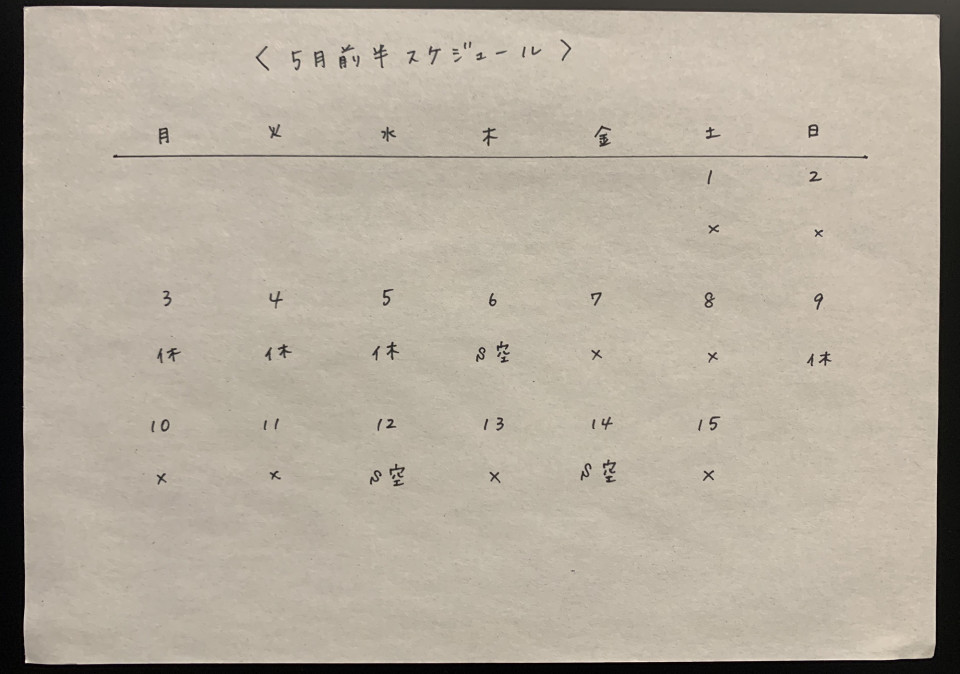 〈 5月前半スケジュール 〉
月 火 水 木 金 土 日
1 2
× ×
3 4 5 6 7 8 9
休 休 休 S空 × × 休
10 11 12 13 14 15
× × S空 × S空 ×